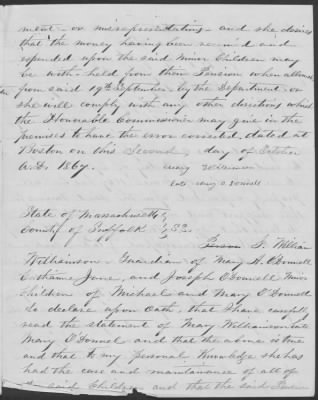 ment - or misrepresentation - and she desires
that the money having been received and
expended upon the said Minor Children may
be with-held from their Pension when allowed
from said 19th September, by the Department or
she will comply with any other directions which
the Honorable Commissioner may give in the
premises to have the error corrected, dated at
Boston on this Second day of October
A.D. 1867.
Mary Williamson
late Mary O'Donnell
State of Massachusetts }
County of Suffolk } SS.
I, William
Williamson - Guardian of Mary H. O'Donnell
Catharine Jane, and Joseph O'Donnell Minor
Children of Michael and Mary O'Donnell
do declare upon Oath, that I have carefully
read the statement of Mary Williamson late
Mary O'Donnell and that the above is true
and that to my personal Knowledge she has
had the care and maintanance of all of
the said Children and that the said